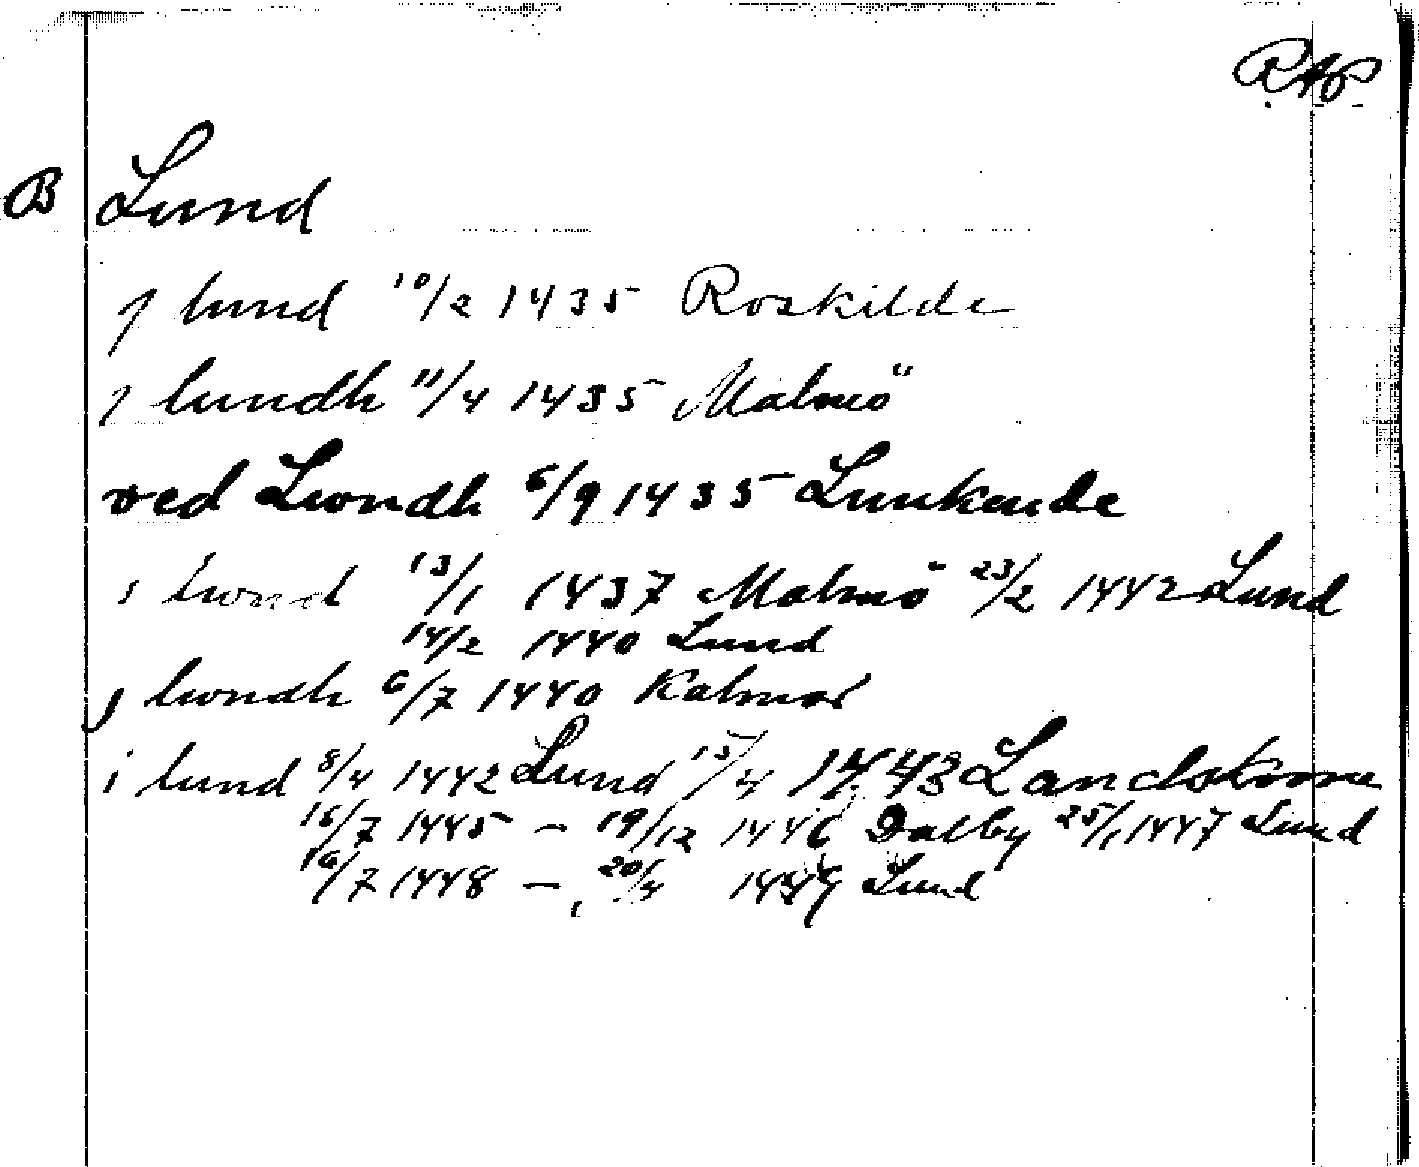 RAp
B Lund
j lund 10/2 1435 Roskilde
j lundh 11/4 1435 Malmö
ved Lwndh 6/9 1435 Lunkende
i lwnd 13/1 1437 Malmö 23/2 1442 Lund
14/2 1440 Lund
j lwndh 6/7 1440 Kalmar
i lund 8/4 1442 Lund 15/4 1443 Landskrona
16/7 1445 – 19/12 1446 Dalby 25/1 1447 Lund
16/7 1448 – , 20/4 1449 Lund